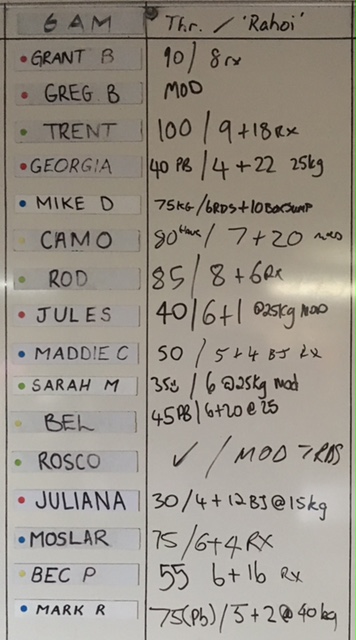 6 AM Thr. / 'Rahoi'
GRANT B 90 / 8 rx
GREG. B MOD
TRENT 100 / 9 + 18 RX
GEORGIA 40 PB / 4 + 22 25kg
MIKE D 75KG / 6RDS + 10 BOXJUMP
CAMO 80 / 7 + 20
ROD 85 / 8 + 6 Rx
JULES 40 / 6 + 1 @25kg MOD
MADDIE C 50 / 5 + 4 BJ RX
SARAH M 35 / 6 @25kg Mod
BEL 45 PB / 6+20 @ 25
ROSCO ✓ / MOD 7 RDS
JULIANA 30 / 4 + 12 BJ @ 15kg
MOSLAR 75 / 6 + 4 RX
BEC P 55 6 + 16 Rx
MARK R 75 (Pb) / 5 + 2 @ 40 kg